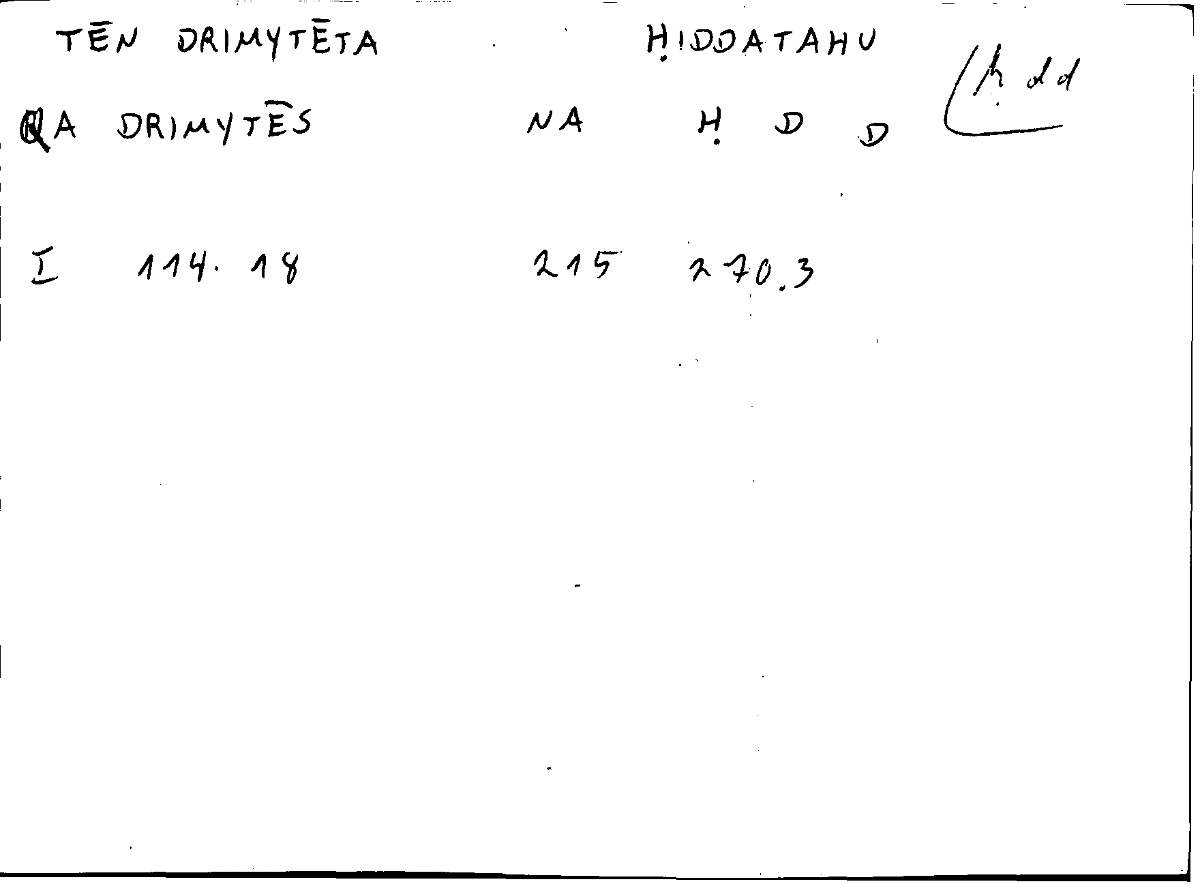 TĒN DRIMYTĒTA ḤIDDATAHU
QA DRIMYTĒS NA Ḥ D D ḥdd
I 114.18 215 270.3